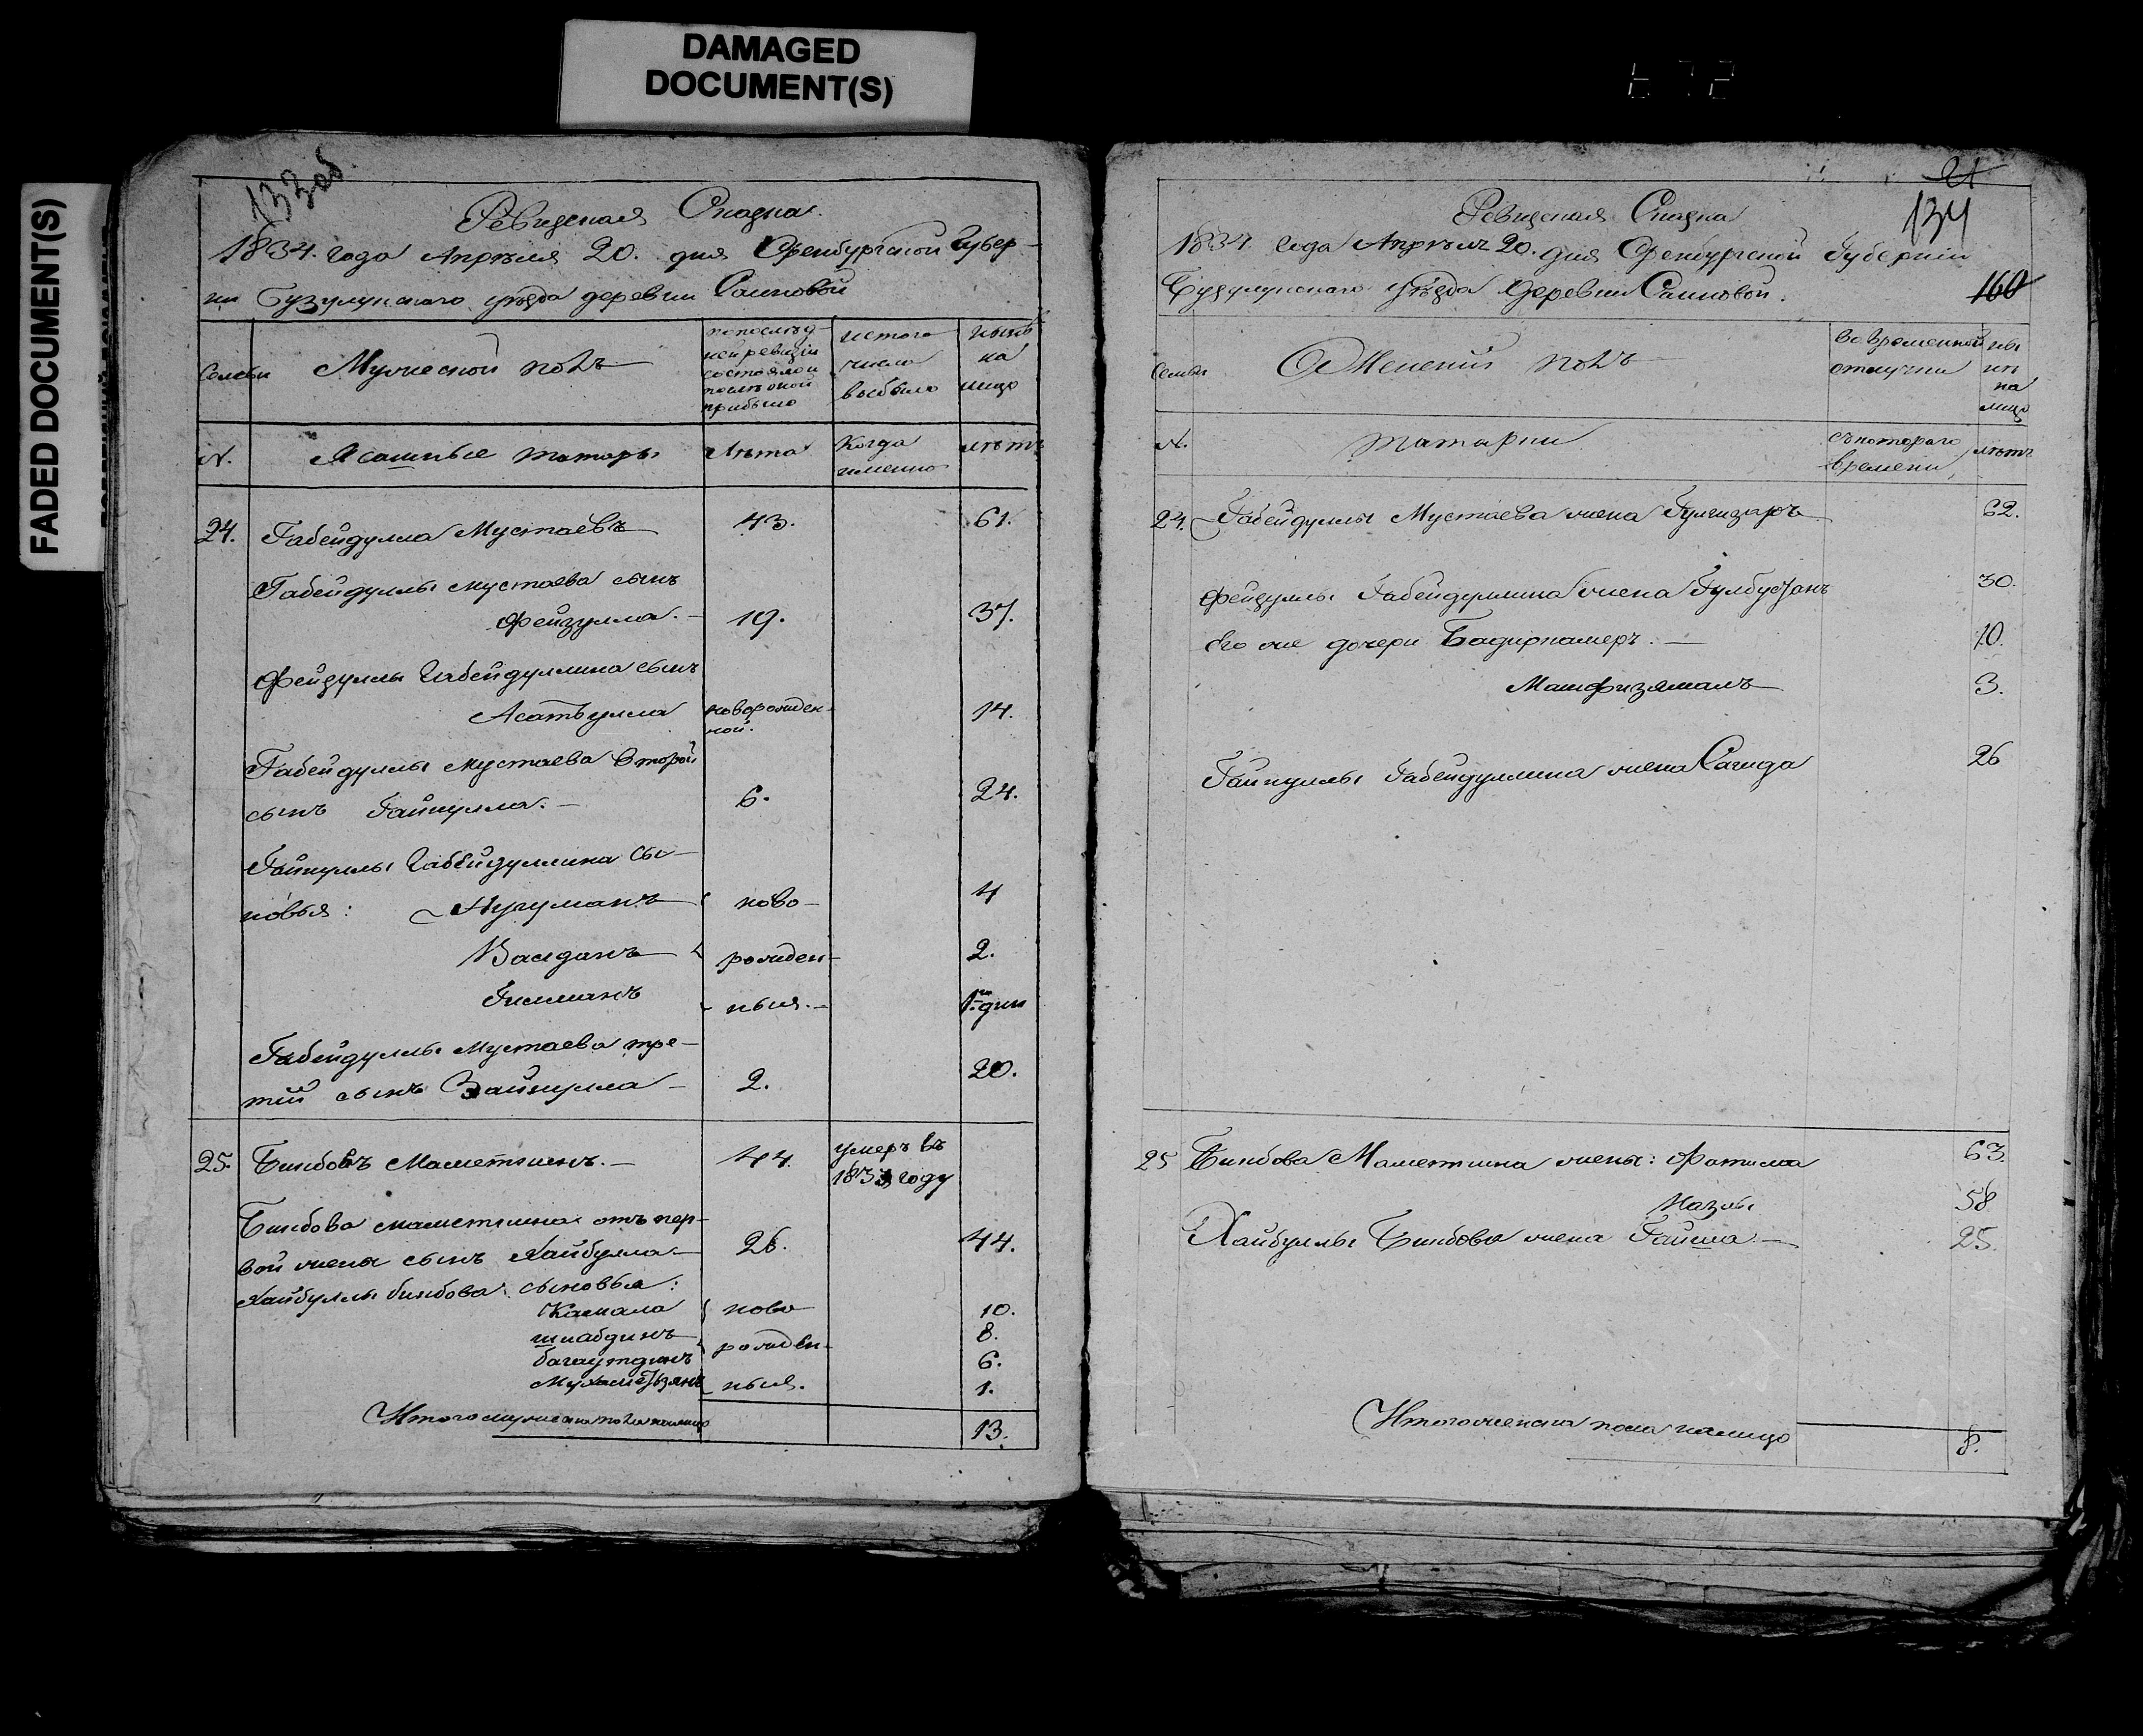 DAMAGED
DOCUMENT(S)
FADED DOCUMENT(S)
133об.
Ревизская Сказка.
1834. года Апреля 20. дня Оренбургской Губер-
нии Бузулукского уѣзда деревни
Семьи
Мужеской полъ
по послѣд-
ней ревизіи
состояло и
послѣ оной
прибыло
из того
числа
выбыло
нынѣ
на
лицо
N.
Ясашные татары
Лѣта
Когда
именно
лѣтъ
24.
Габейдулла Мустаевъ
43.
61.
Габейдуллы мустаева сынъ
Фейзулла. —
19.
37.
Фейзуллы Габейдуллина сынъ
Асатъулла
новорожден-
ной.
14.
Габейдуллы мустаева второй
сынъ Гайнулла. —
6.
24.
Гайнуллы Габейдуллина сы-
новья: Нугуманъ
ново-
4
Валданъ
рожден-
2.
Гилманъ
ныя. —
дни
Габейдуллы Мустаева тре-
тій сынъ Зайнулла —
2.
20.
25.
Бикбовъ Маметкинъ. —
44.
умеръ въ
году
Бикбова маметкина отъ пер-
вой жены сынъ Хайбулла —
26.
44.
Хайбуллы бикбова сыновья:
Камала
ново
10.
шиабдинъ
8.
багаутдинъ
рожден-
6.
Мухаметзянъ
ныя.
1.
Итого мужеска пола налицо
13.
21
134
Ревизская Сказка
1834 года Апрѣля 20. дня Оренбургской Губерніи
160
Бузулукскаго Уѣзда Деревни
Семьи
Женскій полъ
во временной
отлучки
ны
нѣ
на
лицо
N.
татарки
съ котораго
времени
лѣтъ
24.
Габейдуллы Мустаева жена Гулгизаръ
62.
Фейзуллы Габейдуллина жена Гулбустанъ
30.
Его же дочери Бадиркамеръ. —
10.
3.
Гайнуллы Габейдуллина жена Сагида
26
25
Бикбова Маметкина жены: Фатима
63.
58
Хайбуллы Бикбова жена Гайша —
25.
Итого женска пола налицо
8.